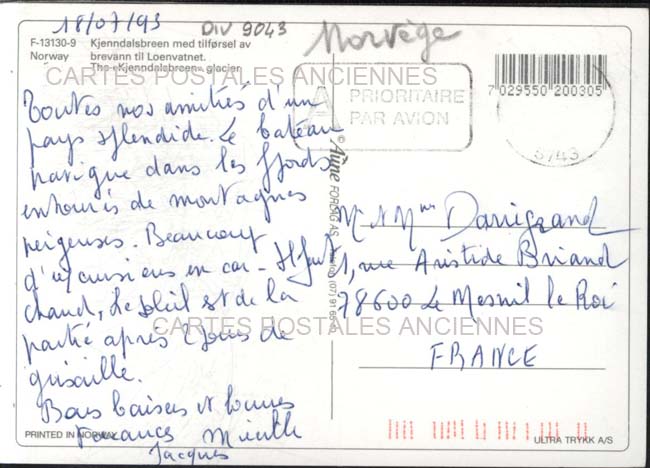 18/07/93
DIV 9043
Norvège
F-13130-9
Norway
Kjenndalsbreen med tilførsel av
brevann til Loenvatnet.
The «Kjenndalsbreen» glacier
CARTES POSTALES ANCIENNES
A PRIORITAIRE
PAR AVION
7 029550 200305
5743
Toutes nos amitiés d'un
pays splendide. Le bateau
navigue dans les fjords
entourés de montagnes
neigeuses. Beaucoup
d'excursions en car - Il fait
chaud, le soleil est de la
partie après 2 jours de
grisaille.
Bons baisers et bonnes
Vacances
Jacques
© Aune FORLAG AS
Mr & Mme Darrigrand
1, rue Aristide Briand
78600 Le Mesnil le Roi
FRANCE
CARTES POSTALES ANCIENNES
PRINTED IN NORWAY
ULTRA TRYKK A/S